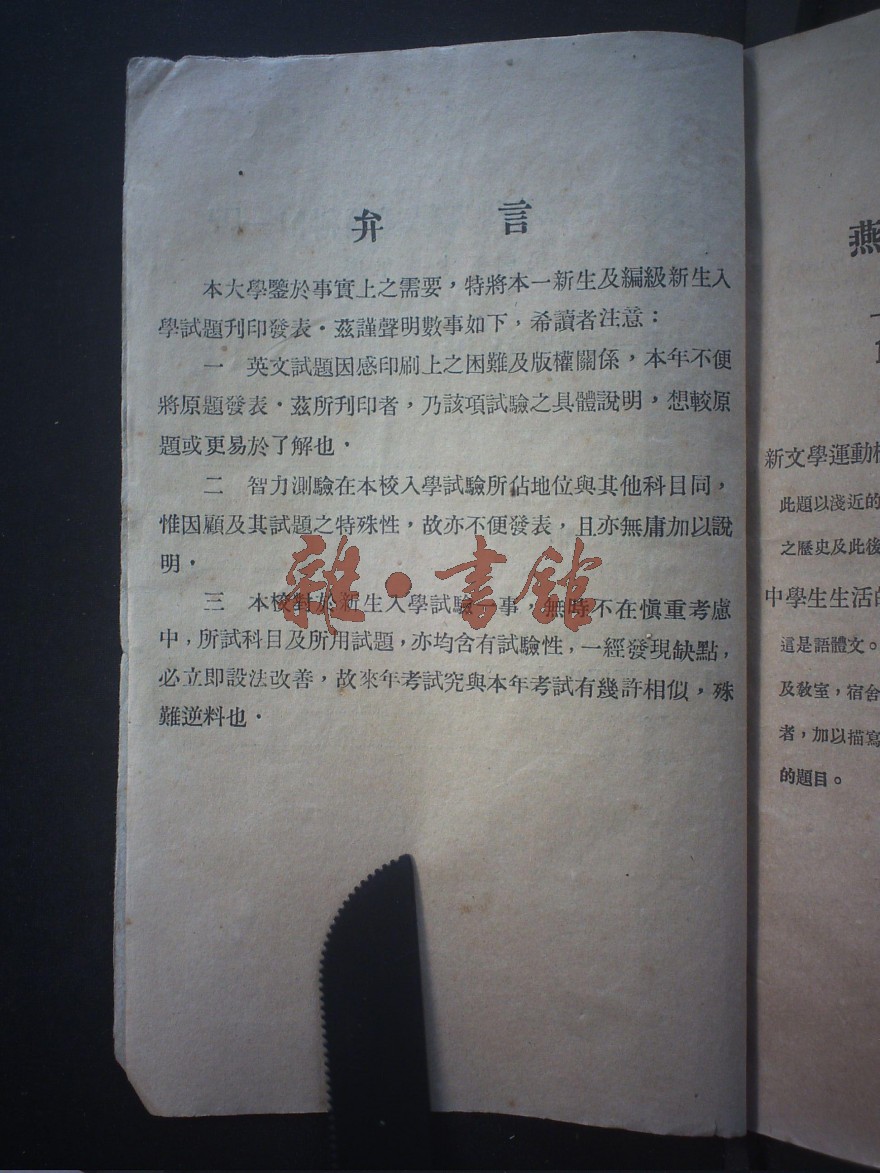 弁言
本大學鑒於事實上之需要，特將本一新生及編級新生入
學試題刊印發表．茲謹聲明數事如下，希讀者注意：
一　英文試題因感印刷上之困難及版權關係，本年不便
將原題發表．茲所刊印者，乃該項試驗之具體說明，想較原
題或更易於了解也．
二　智力測驗在本校入學試驗所佔地位與其他科目同，
惟因顧及其試題之特殊性，故亦不便發表，且亦無庸加以說
明．
三　本校對於新生入學試驗一事，無時不在愼重考慮
中，所試科目及所用試題，亦均含有試驗性，一經發現缺點，
必立即設法改善，故來年考試究與本年考試有幾許相似，殊
難逆料也．
雜·書館
燕
新文學運動
此題以淺近的
之歷史及此後
中學生生活的
這是語體文。
及敎室，宿舍
者，加以描寫
的題目。